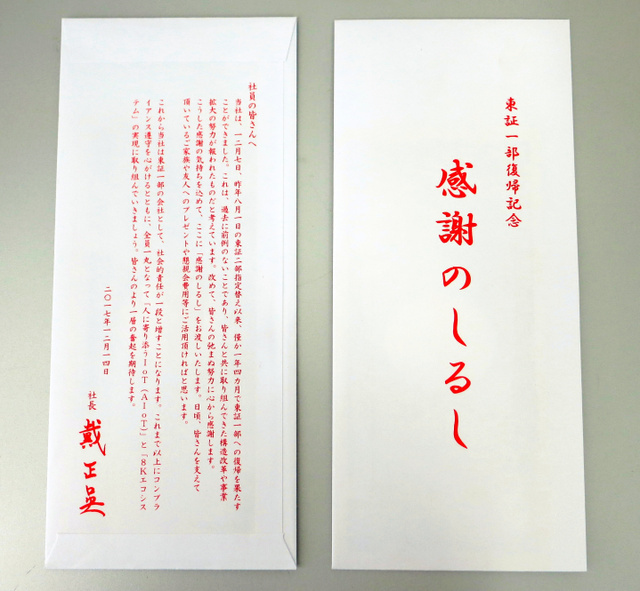 東証一部復帰記念
感謝のしるし
社員の皆さんへ
当社は、一二月七日、昨年八月一日の東証二部指定替え以来、僅か一年四カ月で東証一部への復帰を果たす
ことができました。これは、過去に前例のないことであり、皆さんと共に取り組んできた構造改革や事業
拡大の努力が報われたものだと考えています。改めて、皆さんの弛まぬ努力に心から感謝します。
こうした感謝の気持ちを込めて、ここに「感謝のしるし」をお渡しいたします。日頃、皆さんを支えて
頂いているご家族や友人へのプレゼントや懇親会費用等にご活用頂ければと思います。
これから当社は東証一部の会社として、社会的責任が一段と増すことになります。これまで以上にコンプラ
イアンス遵守を心がけるとともに、全員一丸となって「人に寄り添うIoT（AIoT）」と「8Kエコシス
テム」の実現に取り組んでいきましょう。皆さんのより一層の奮起を期待します。
二〇一七年一二月一四日
社長 戴正呉